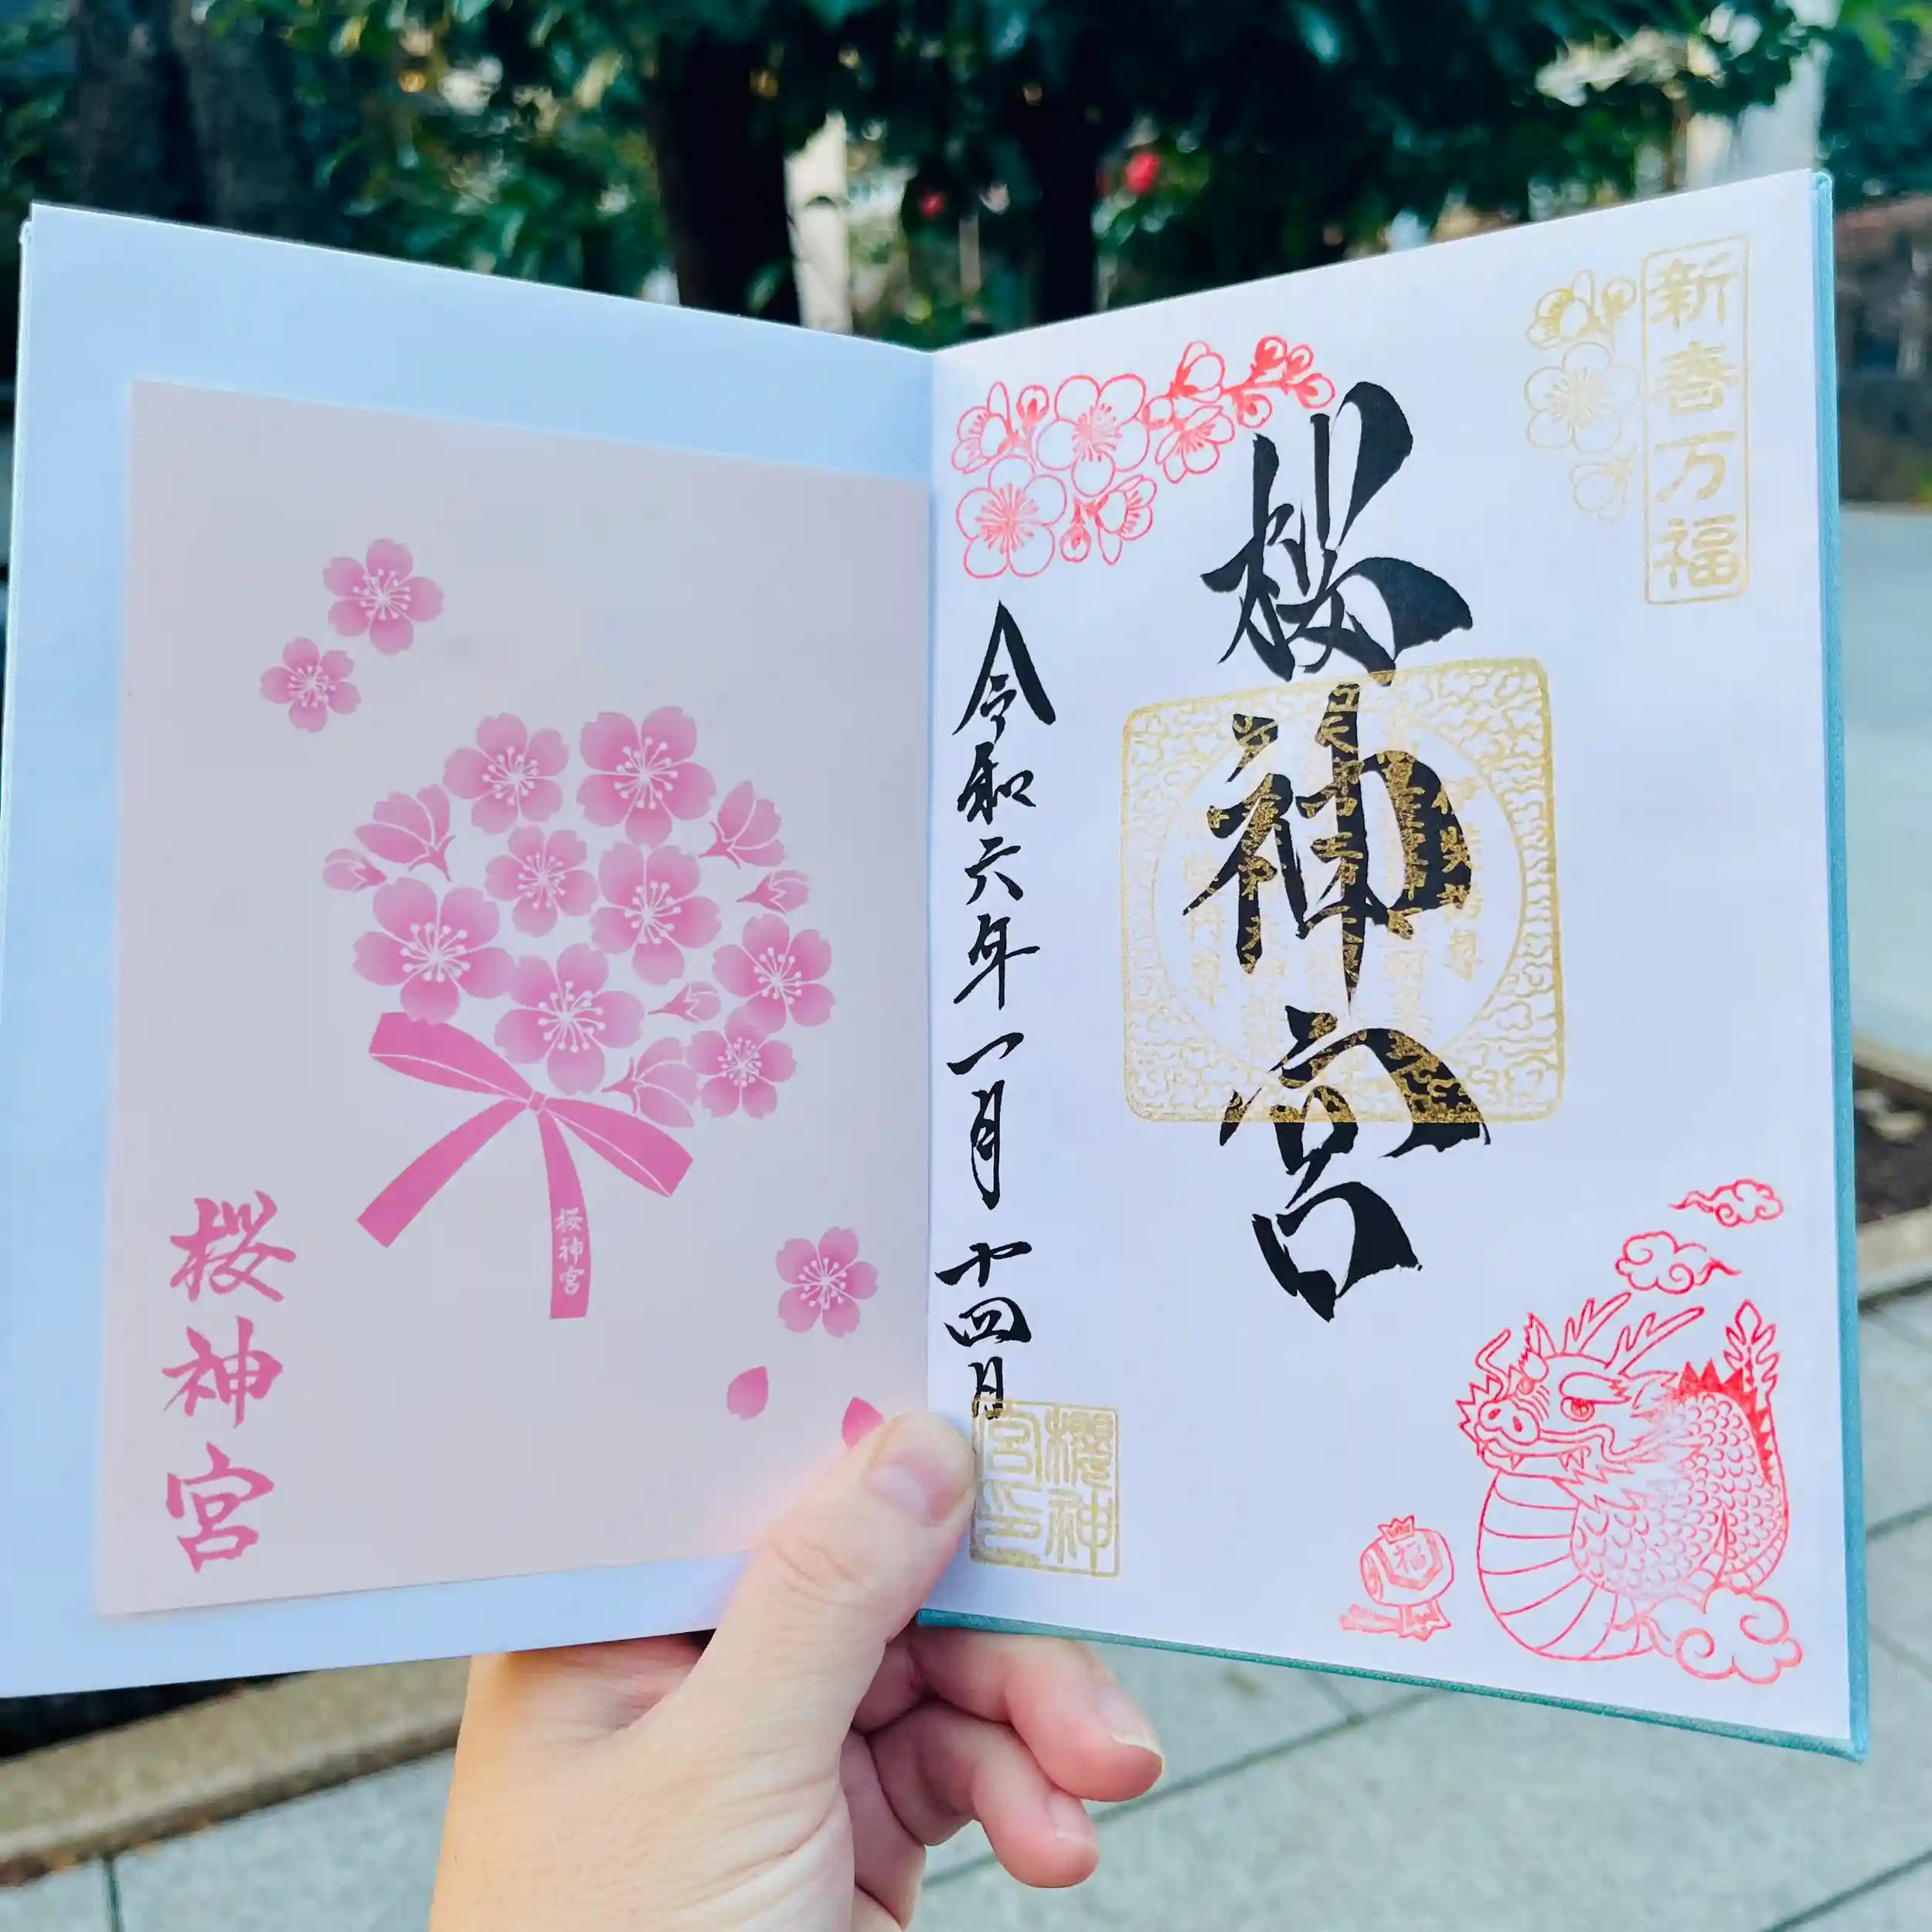 新春万福
桜神宮
令和六年一月十四日
櫻神
宮印
福
桜神宮
桜神宮